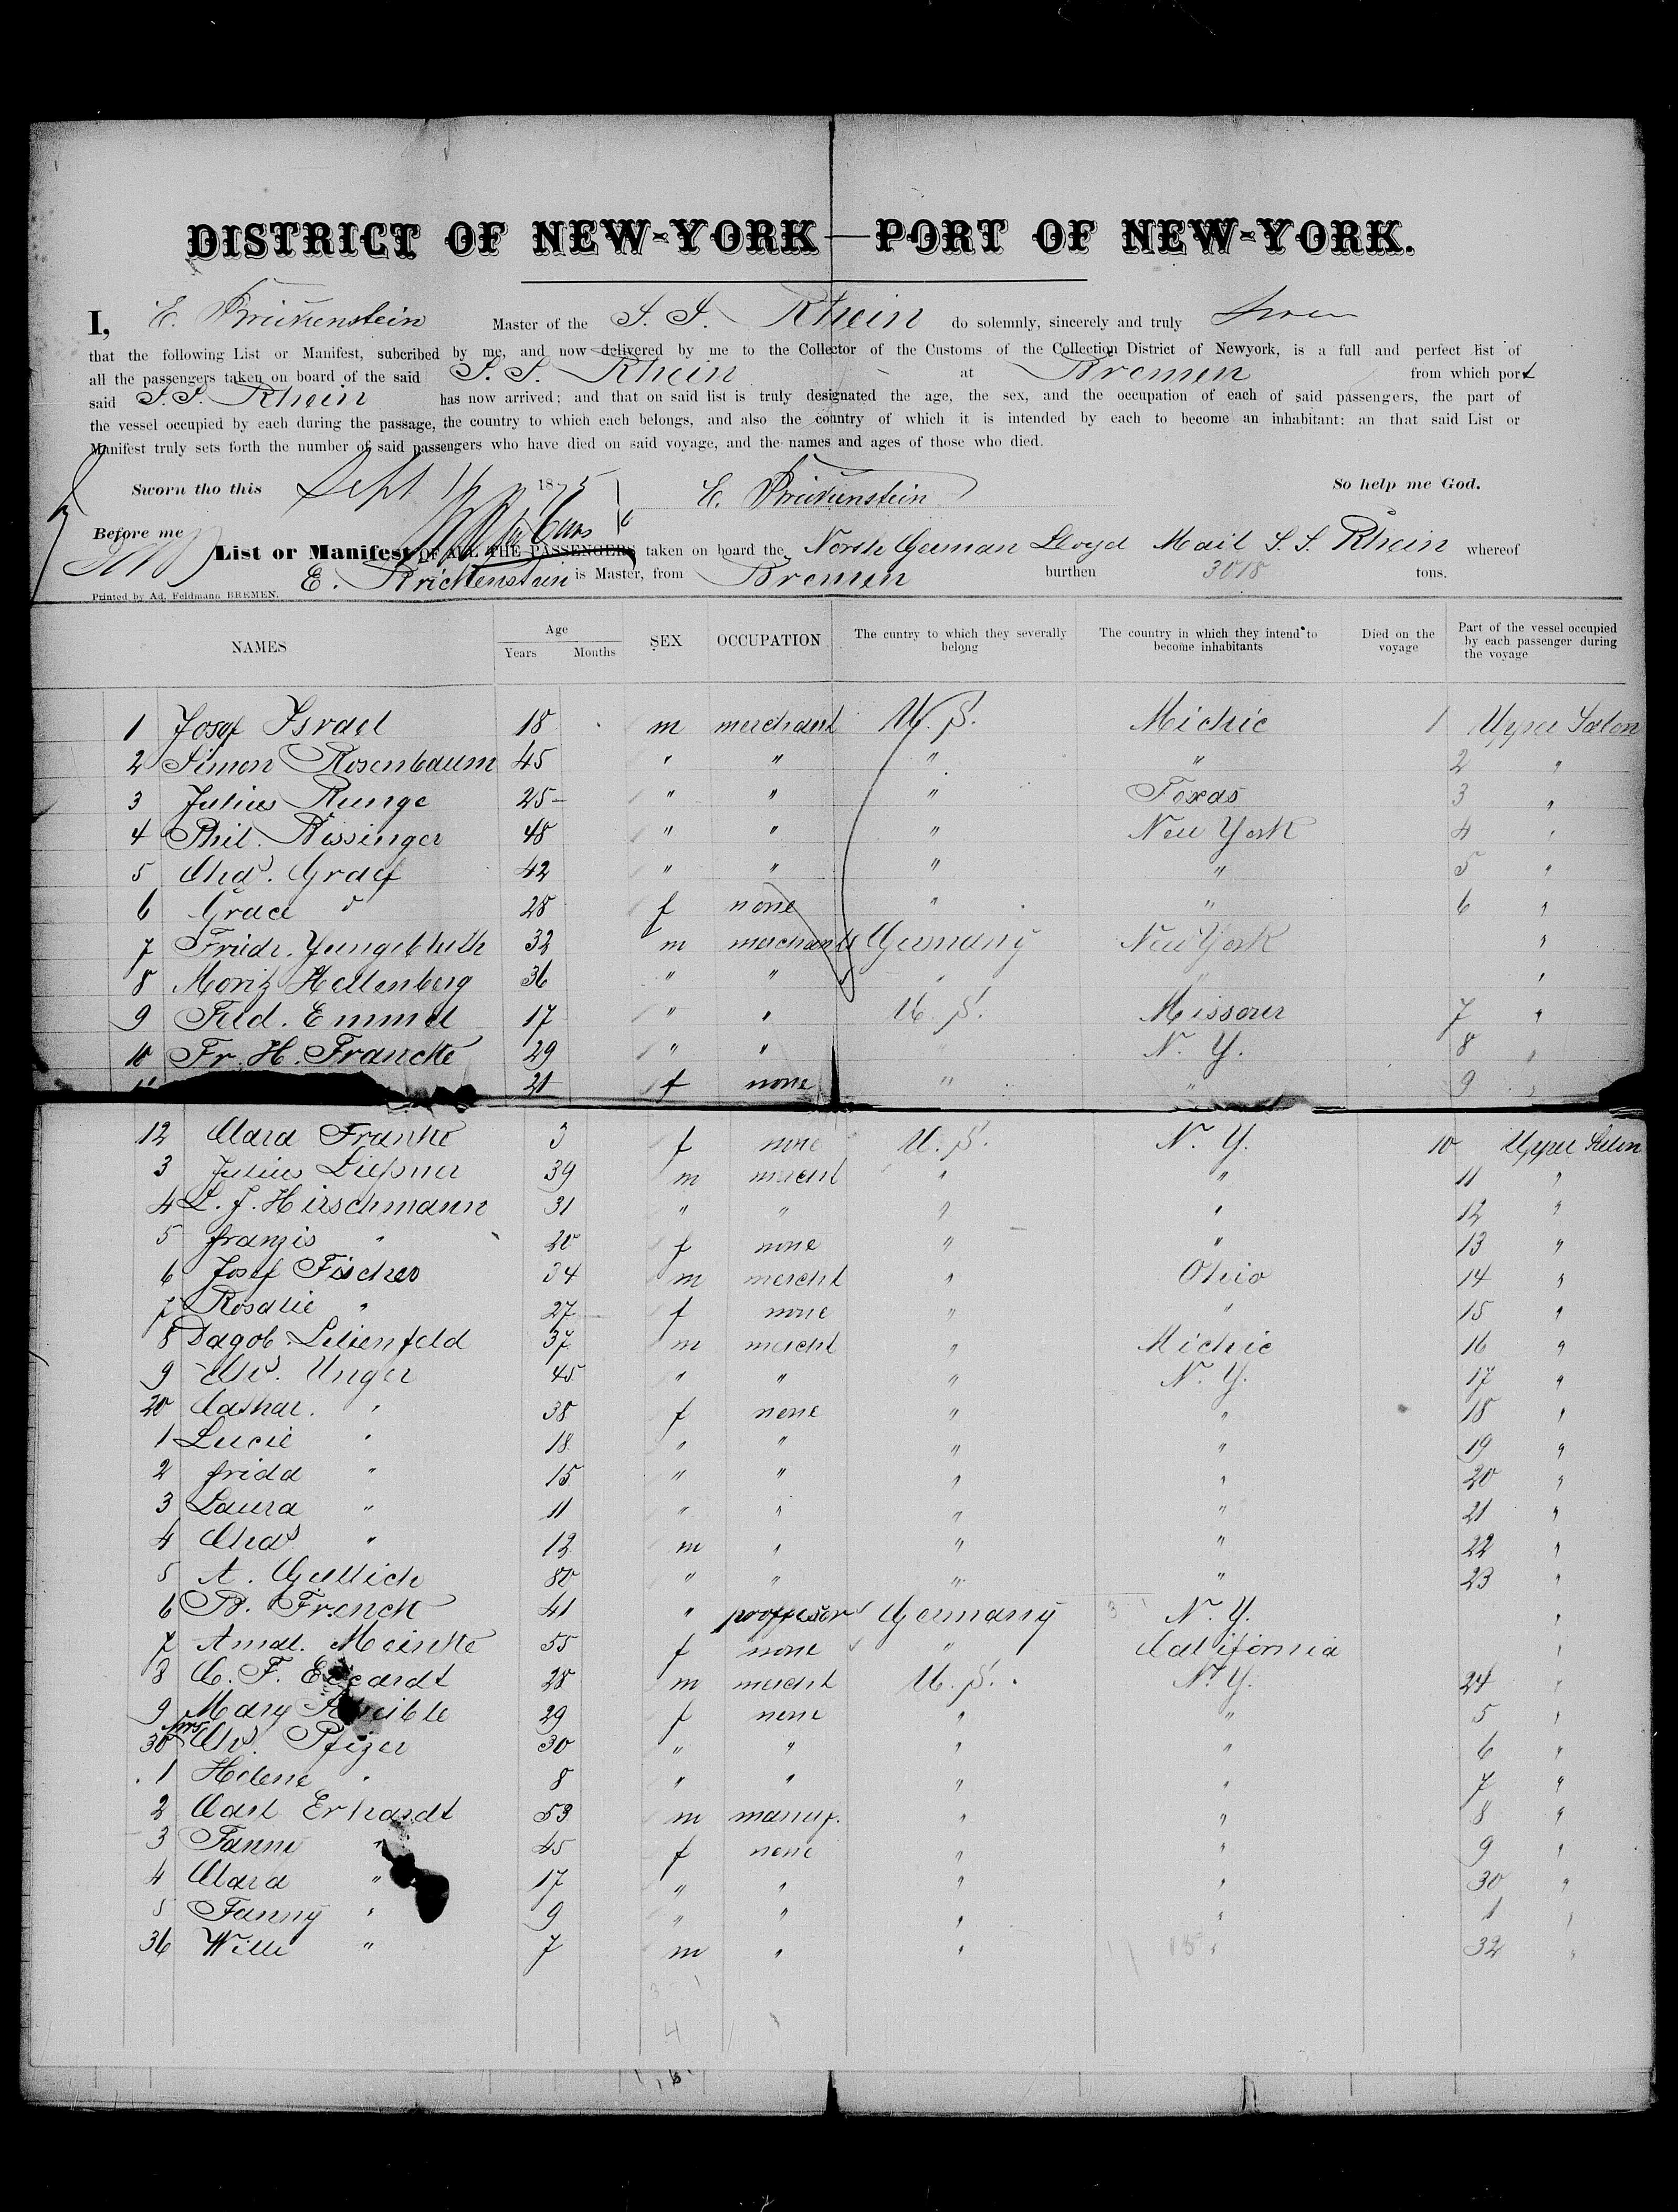 DISTRICT OF NEW-YORK—PORT OF NEW-YORK.
I, E. Brickenstein Master of the S. S. Rhein do solemnly, sincerely and truly
that the following List or Manifest, subcribed by me, and now delivered by me to the Collector of the Customs of the Collection District of Newyork, is a full and perfect list of
all the passengers taken on board of the said S. S. Rhein at Bremen from which port
said S. S. Rhein has now arrived; and that on said list is truly designated the age, the sex, and the occupation of each of said passengers, the part of
the vessel occupied by each during the passage, the country to which each belongs, and also the country of which it is intended by each to become an inhabitant: an that said List or
Manifest truly sets forth the number of said passengers who have died on said voyage, and the names and ages of those who died.
Sworn tho this Sept 1875 E. Brickenstein So help me God.
Before me
List or Manifest OF ALL THE PASSENGERS taken on board the North German Lloyd Mail S. S. Rhein whereof
E. Brickenstein is Master, from Bremen burthen 3018 tons.
Printed by Ad. Feldmann BREMEN.
NAMES Age Years Months SEX OCCUPATION The cuntry to which they severally belong The country in which they intend to become inhabitants Died on the voyage Part of the vessel occupied by each passenger during the voyage
1 Josef Israel 18 m merchant U. S. Michic 1 Upper Salon
2 Simon Rosenbaum 45 " " " " 2 "
3 Julius Runge 25 " " " Texas 3 "
4 Phil. Bissinger 48 " " " New York 4 "
5 Chas. Graef 42 " " " " 5 "
6 Grace " 28 f none " " 6 "
7 Friedr. Jungebluth 32 m merchant Germany New York "
8 Moritz Hellenberg 36 " " " " "
9 Fred. Emmel 17 " " U. S. Missour 7 "
10 Fr. H. Francke 29 " " N. Y. 8 "
21 f none " " 9 "
12 Clara Franke 3 f none U. S. N. Y. 10 Upper Salon
3 Julius Liessner 39 m mercht " " 11 "
4 L. J. Hirschmann 31 " " " " 12 "
5 franzis " 20 f none " " 13 "
6 Josef Fischer 34 m mercht " Ohio 14 "
7 Rosalie " 27 f none " " 15 "
8 Dagob. Lilienfeld 37 m mercht " Michic 16 "
9 Chs. Unger 45 " " " N. Y. 17 "
20 Cathar. " 38 f none " " 18 "
1 Lucie " 18 " " " " 19 "
2 frida " 15 " " " " 20 "
3 Laura " 11 " " " " 21 "
4 Chas " 12 m " " " 22 "
5 A. Gullich 80 " " " " 23 "
6 B. French 41 " proffesor Germany N. Y. "
7 Amal. Meinke 55 f none " California "
8 C. F. 28 m mercht U. S. N. Y. 24 "
9 Mary 29 f none " " 5 "
30 Mrs Chs. Pfizer 30 " " " " 6 "
1 Helene " 8 " " " " 7 "
2 Carl Erhardt 53 m manuf. " " 8 "
3 Fanny " 45 f none " " 9 "
4 Clara " 17 " " " " 30 "
5 Fanny " 9 " " " " 1 "
36 Willi " 7 m " " " 32 "